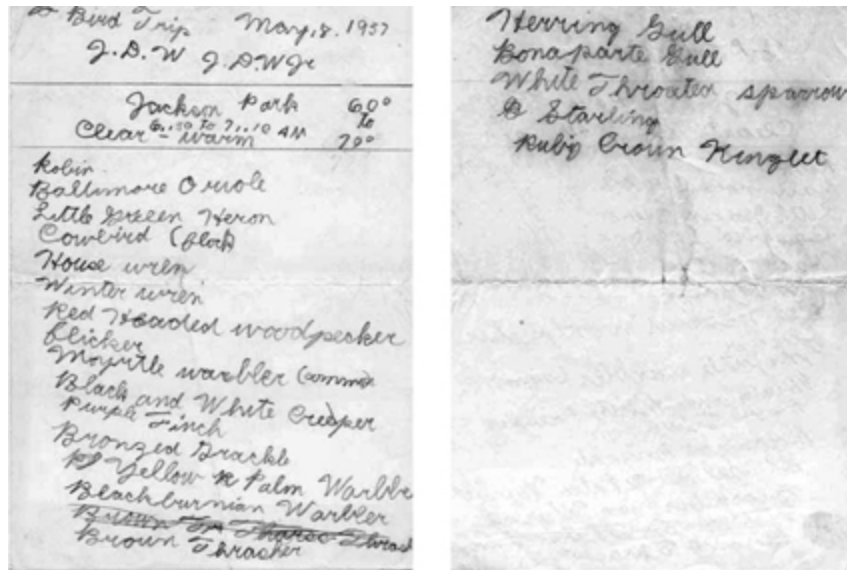 Bird Trip May, 8. 1937
J. D. W J. D. W Jr
Jackson Park 60°
6..10 to 7..10 AM to
Clear - warm 70°
Robin
Baltimore Oriole
Little Green Heron
Cowbird (flock)
House wren
Winter wren
Red Headed woodpecker
flicker
Myrtle warbler (common
Black and White Creeper
Purple Finch
Bronzed Grackle
Yellow R Palm Warbler
Blackburnian Warbler
Brown Thrasher
Herring Gull
Bonaparte Gull
White Throated sparrow
Starling
Ruby Crown Kinglet